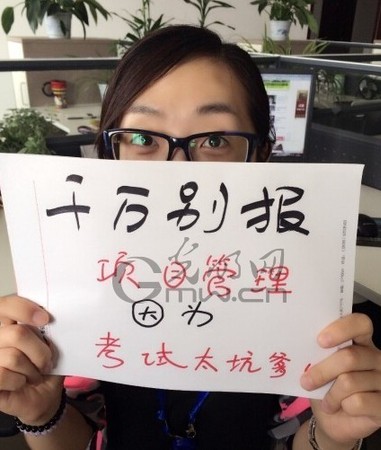 千万别报
项目管理
因为
考试太坑爹!
光明网
Gmw.cn